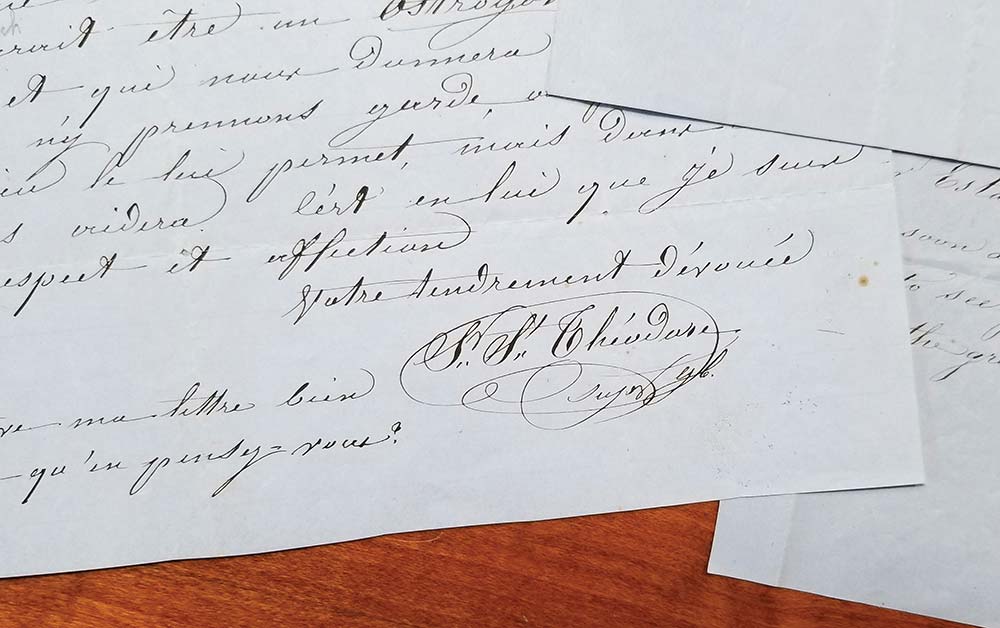 être un
et qui nous donnera
n'y prennons garde,
le lui permet, mais dans
aidera. C'est en lui que je suis
respect et affection
Votre tendrement dévouée
Sr. St. Théodore
supr. gl.
ma lettre bien
qu'en pensez-vous?
soon
to see
the gr